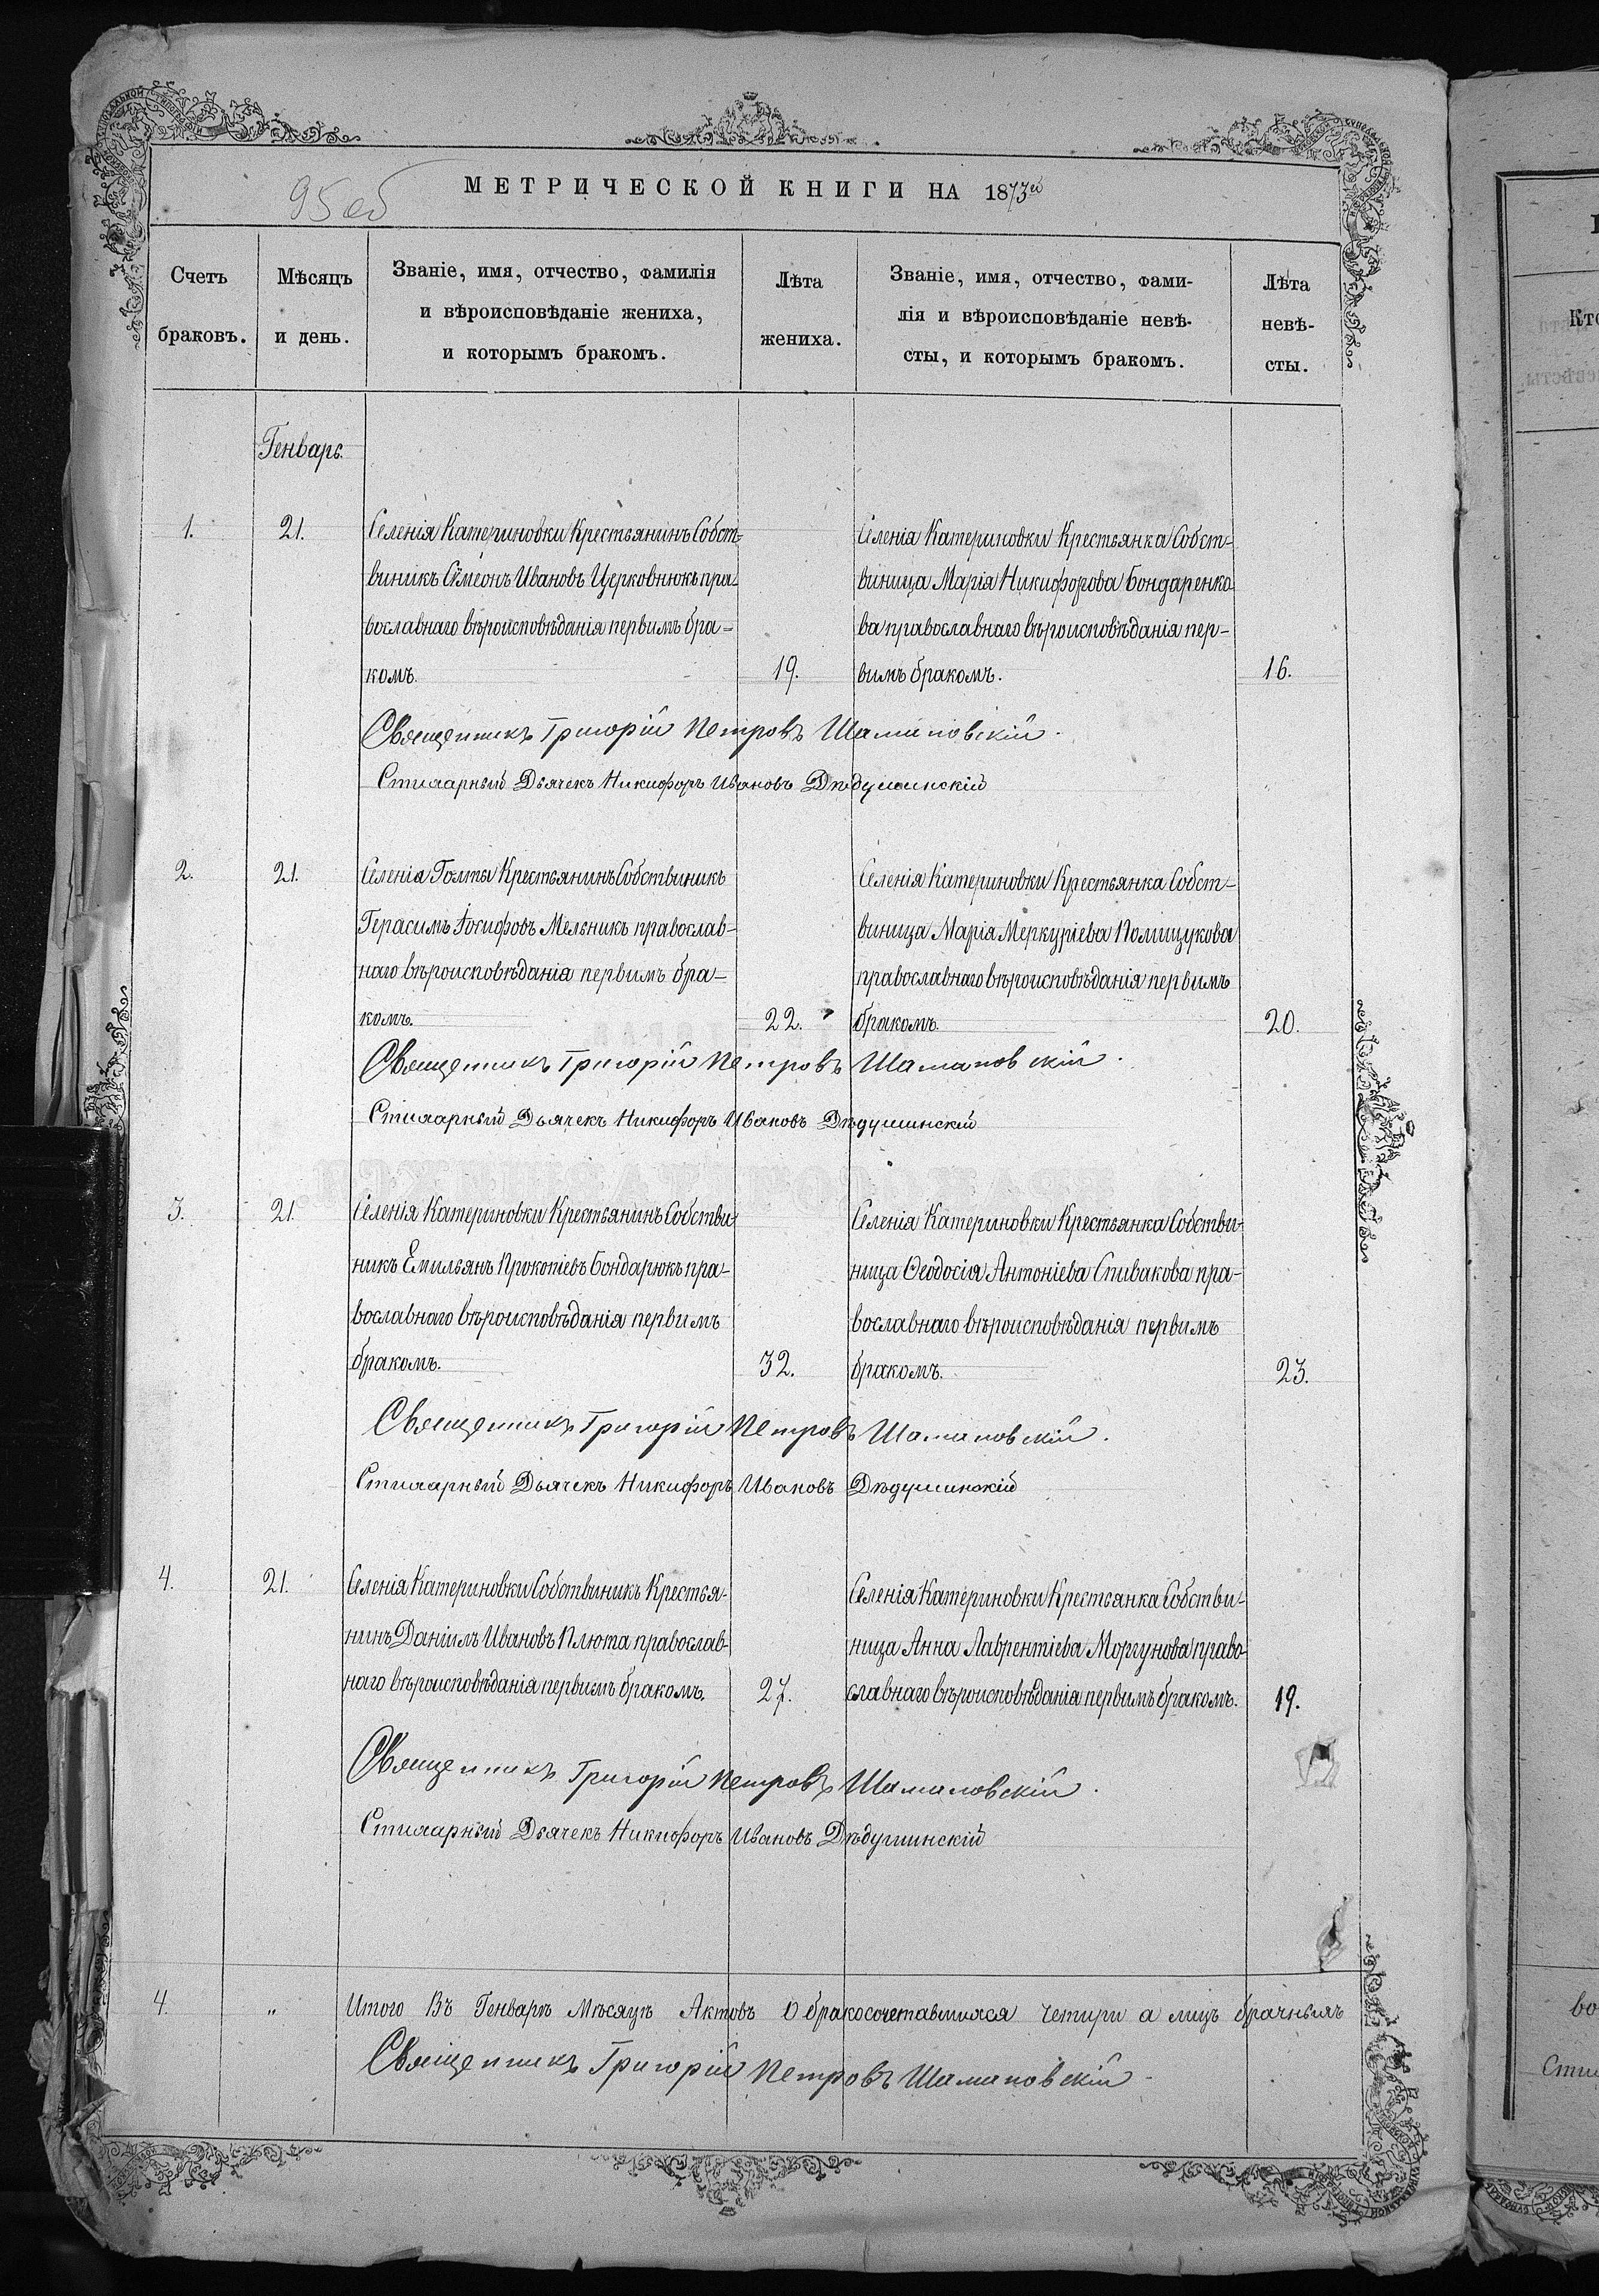 МЕТРИЧЕСКОЙ КНИГИ НА 1873й
95 об
Счетъ браковъ.
Мѣсяцъ и день.
Званіе, имя, отчество, фамилія
и вѣроисповѣданіе жениха,
и которымъ бракомъ.
Лѣта жениха.
Званіе, имя, отчество, фами-
лія и вѣроисповѣданіе невѣ-
сты, и которымъ бракомъ.
Лѣта невѣ-
сты.
Генварь.
1.
21.
Селенія Катериновки Крестьянинъ Собст-
виникъ Сѵмеонъ Ивановъ Церковнюкъ пра-
вославнаго вѣроисповѣданія первимъ бра-
комъ.
19.
Селенія Катериновки Крестьянка Собст-
виница Марія Никифорова Бондаренко-
ва православнаго вѣроисповѣданія пер-
вимъ бракомъ.
16.
Священникъ Григорій Петровъ Шамановскій.
Стихарный Дьячекъ Никифоръ Ивановъ Дѣдушинскій
2.
21.
Селенія Голты Крестьянинъ Собствиникъ
Герасимъ Іосифовъ Мельникъ православ-
наго вѣроисповѣданія первимъ бра-
комъ.
22.
Селенія Катериновки Крестьянка Собст-
виница Марія Меркуріева Полищукова
православнаго вѣроисповѣданія первимъ
бракомъ.
20.
Священникъ Григорій Петровъ Шамановскій.
Стихарный Дьячекъ Никифоръ Ивановъ Дѣдушинскій
3.
21.
Селенія Катериновки Крестьянинъ Собстви-
никъ Емильянъ Прокопіевъ Бондарюкъ пра-
вославнаго вѣроисповѣданія первимъ
бракомъ.
32.
Селенія Катериновки Крестьянка Собстви-
ница Ѳеодосія Антоніева Спивакова пра-
вославнаго вѣроисповѣданія первимъ
бракомъ.
23.
Священникъ Григорій Петровъ Шамановскій.
Стихарный Дьячекъ Никифоръ Ивановъ Дѣдушинскій
4.
21.
Селенія Катериновки Собствиникъ Крестья-
нинъ Даніилъ Ивановъ Плюта православ-
наго вѣроисповѣданія первимъ бракомъ.
27.
Селенія Катериновки Крестьянка Собстви-
ница Анна Лаврентіева Моргунова право-
славнаго вѣроисповѣданія первимъ бракомъ.
19.
Священникъ Григорій Петровъ Шамановскій.
Стихарный Дьячекъ Никифоръ Ивановъ Дѣдушинскій
4.
"
Итого Въ Генварѣ Мѣсяцѣ Актовъ О бракосочетавшихся четири а лицъ брачныхъ
Священникъ Григорій Петровъ Шамановскій.
Кто
во
Стих